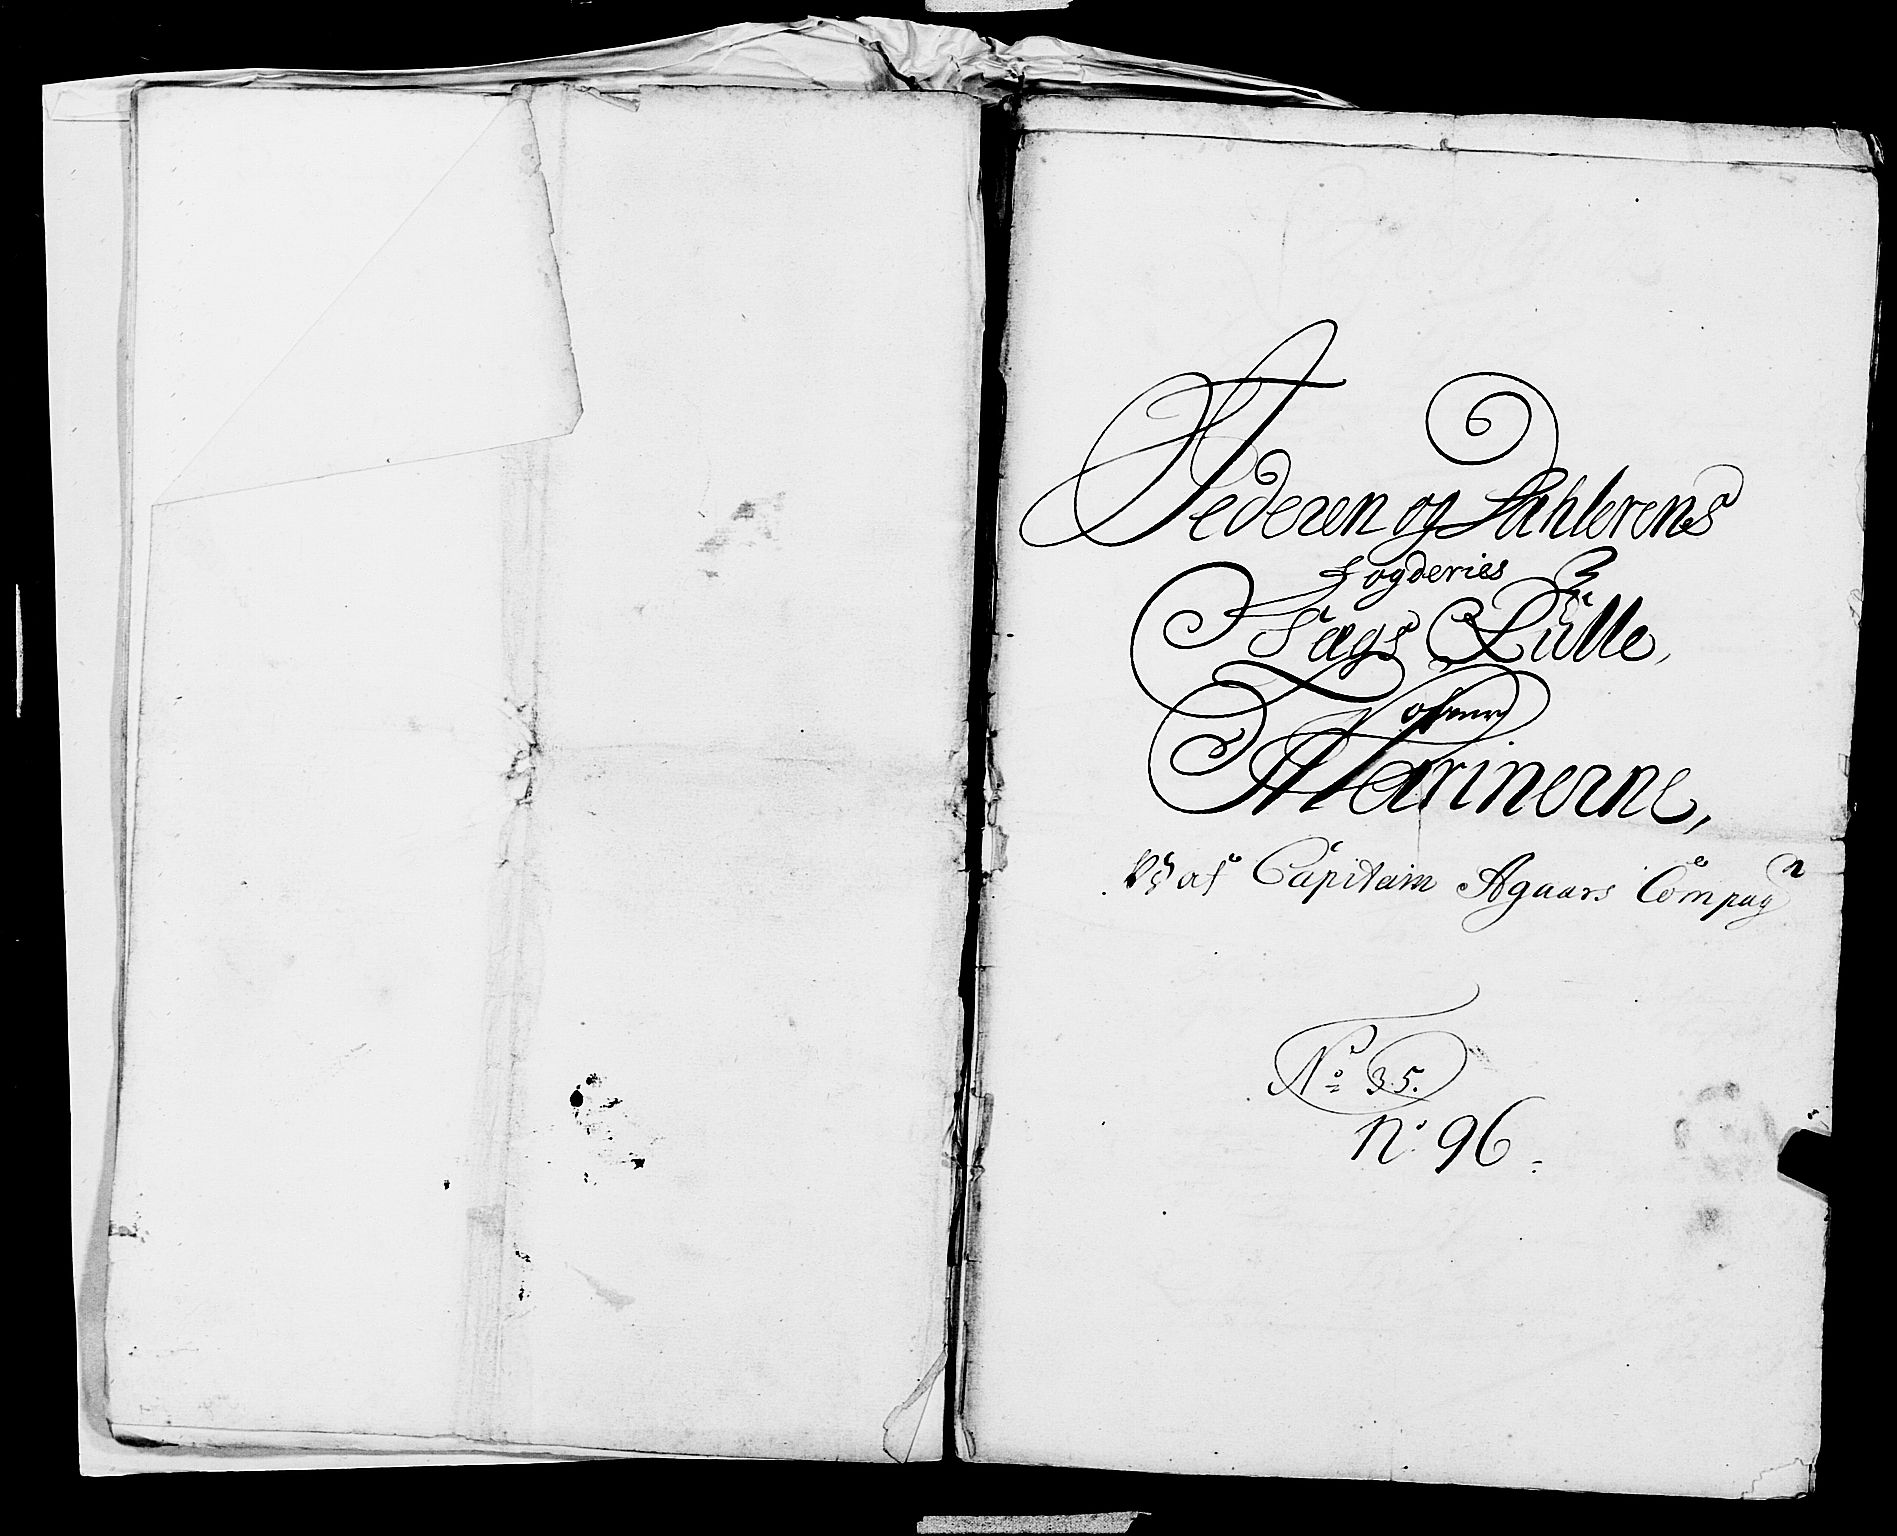 Jederen og Dahlerens
fogderies
Lægs Rülle,
ofver
Marinerne,
af Capitain Agaars Compagn
No 35.
No 96